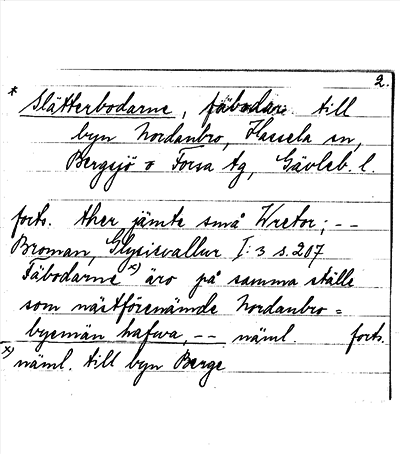 2.
* Slätterbodarne, fäbodar till
byn Nordanbro, Hassela sn,
Bergsjö o Forsa tg, Gävleb. l.
forts. ther jämte små Wretor; --
Broman, Glysisvallur I: 3 s. 207
Fäbodarne x) äro på samma ställe
som nästförenämde Nordanbro =
byemän hafwa, -- näml. forts.
x) näml. till byn Berge